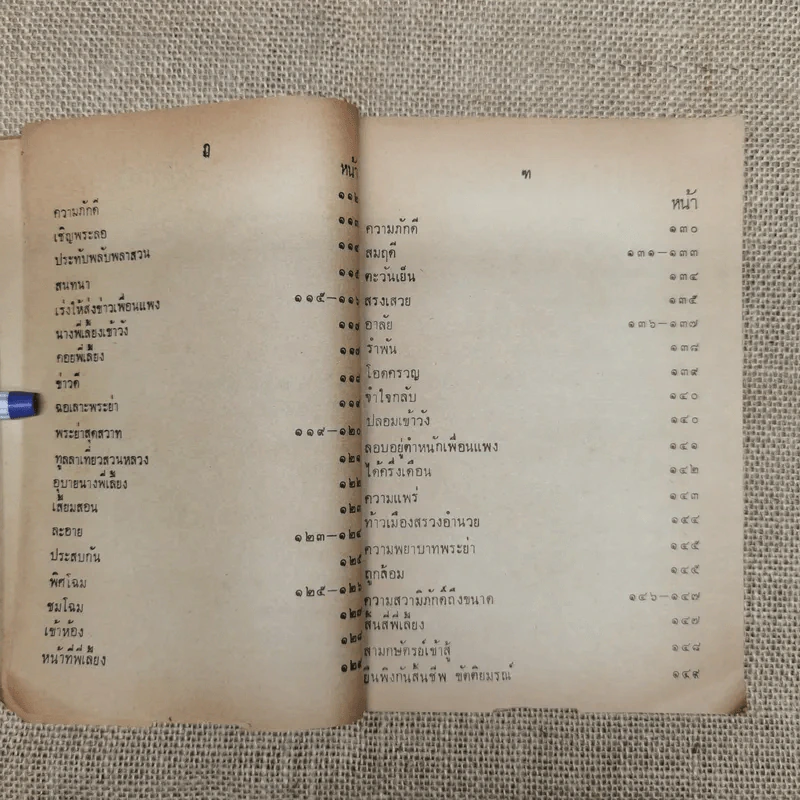 หน้า
ความภักดี ๑๑๒
เชิญพระลอ ๑๑๓
ประทับพลับพลาสวน ๑๑๔
สนทนา ๑๑๕
เร่งให้ส่งข่าวเพื่อนแพง ๑๑๕—๑๑๖
นางพี่เลี้ยงเข้าวัง
คอยพี่เลี้ยง ๑๑๗
ข่าวดี ๑๑๘
ฉอเลาะพระย่า ๑๑๙
พระย่าสุดสวาท ๑๑๙—๑๒๐
ทูลลาเที่ยวสวนหลวง ๑๒๑
อุบายนางพี่เลี้ยง ๑๒๒
เสี้ยมสอน ๑๒๓
ละอาย ๑๒๓—๑๒๔
ประสบกัน ๑๒๕
พิศโฉม ๑๒๕—๑๒๖
ชมโฉม ๑๒๗
เข้าห้อง ๑๒๘
หน้าที่พี่เลี้ยง ๑๒๙
ฑ
หน้า
ความภักดี ๑๓๐
สมฤดี ๑๓๑—๑๓๓
ตะวันเย็น ๑๓๔
สรงเสวย ๑๓๕
อาลัย ๑๓๖—๑๓๗
รำพัน ๑๓๘
โอดครวญ ๑๓๙
จำใจกลับ ๑๔๐
ปลอมเข้าวัง ๑๔๐
ลอบอยู่ตำหนักเพื่อนแพง ๑๔๑
ได้ครึ่งเดือน ๑๔๒
ความแพร่ ๑๔๓
ท้าวเมืองสรวงอำนวย ๑๔๔
ความพยาบาทพระย่า ๑๔๕
ถูกล้อม ๑๔๕
ความสวามิภักดิ์ถึงขนาด ๑๔๖—๑๔๗
สิ้นสี่พี่เลี้ยง ๑๔๗
สามกษัตรย์เข้าสู้ ๑๔๘
ยืนพิงกันสิ้นชีพ ขัตติยมรณ์ ๑๔๙